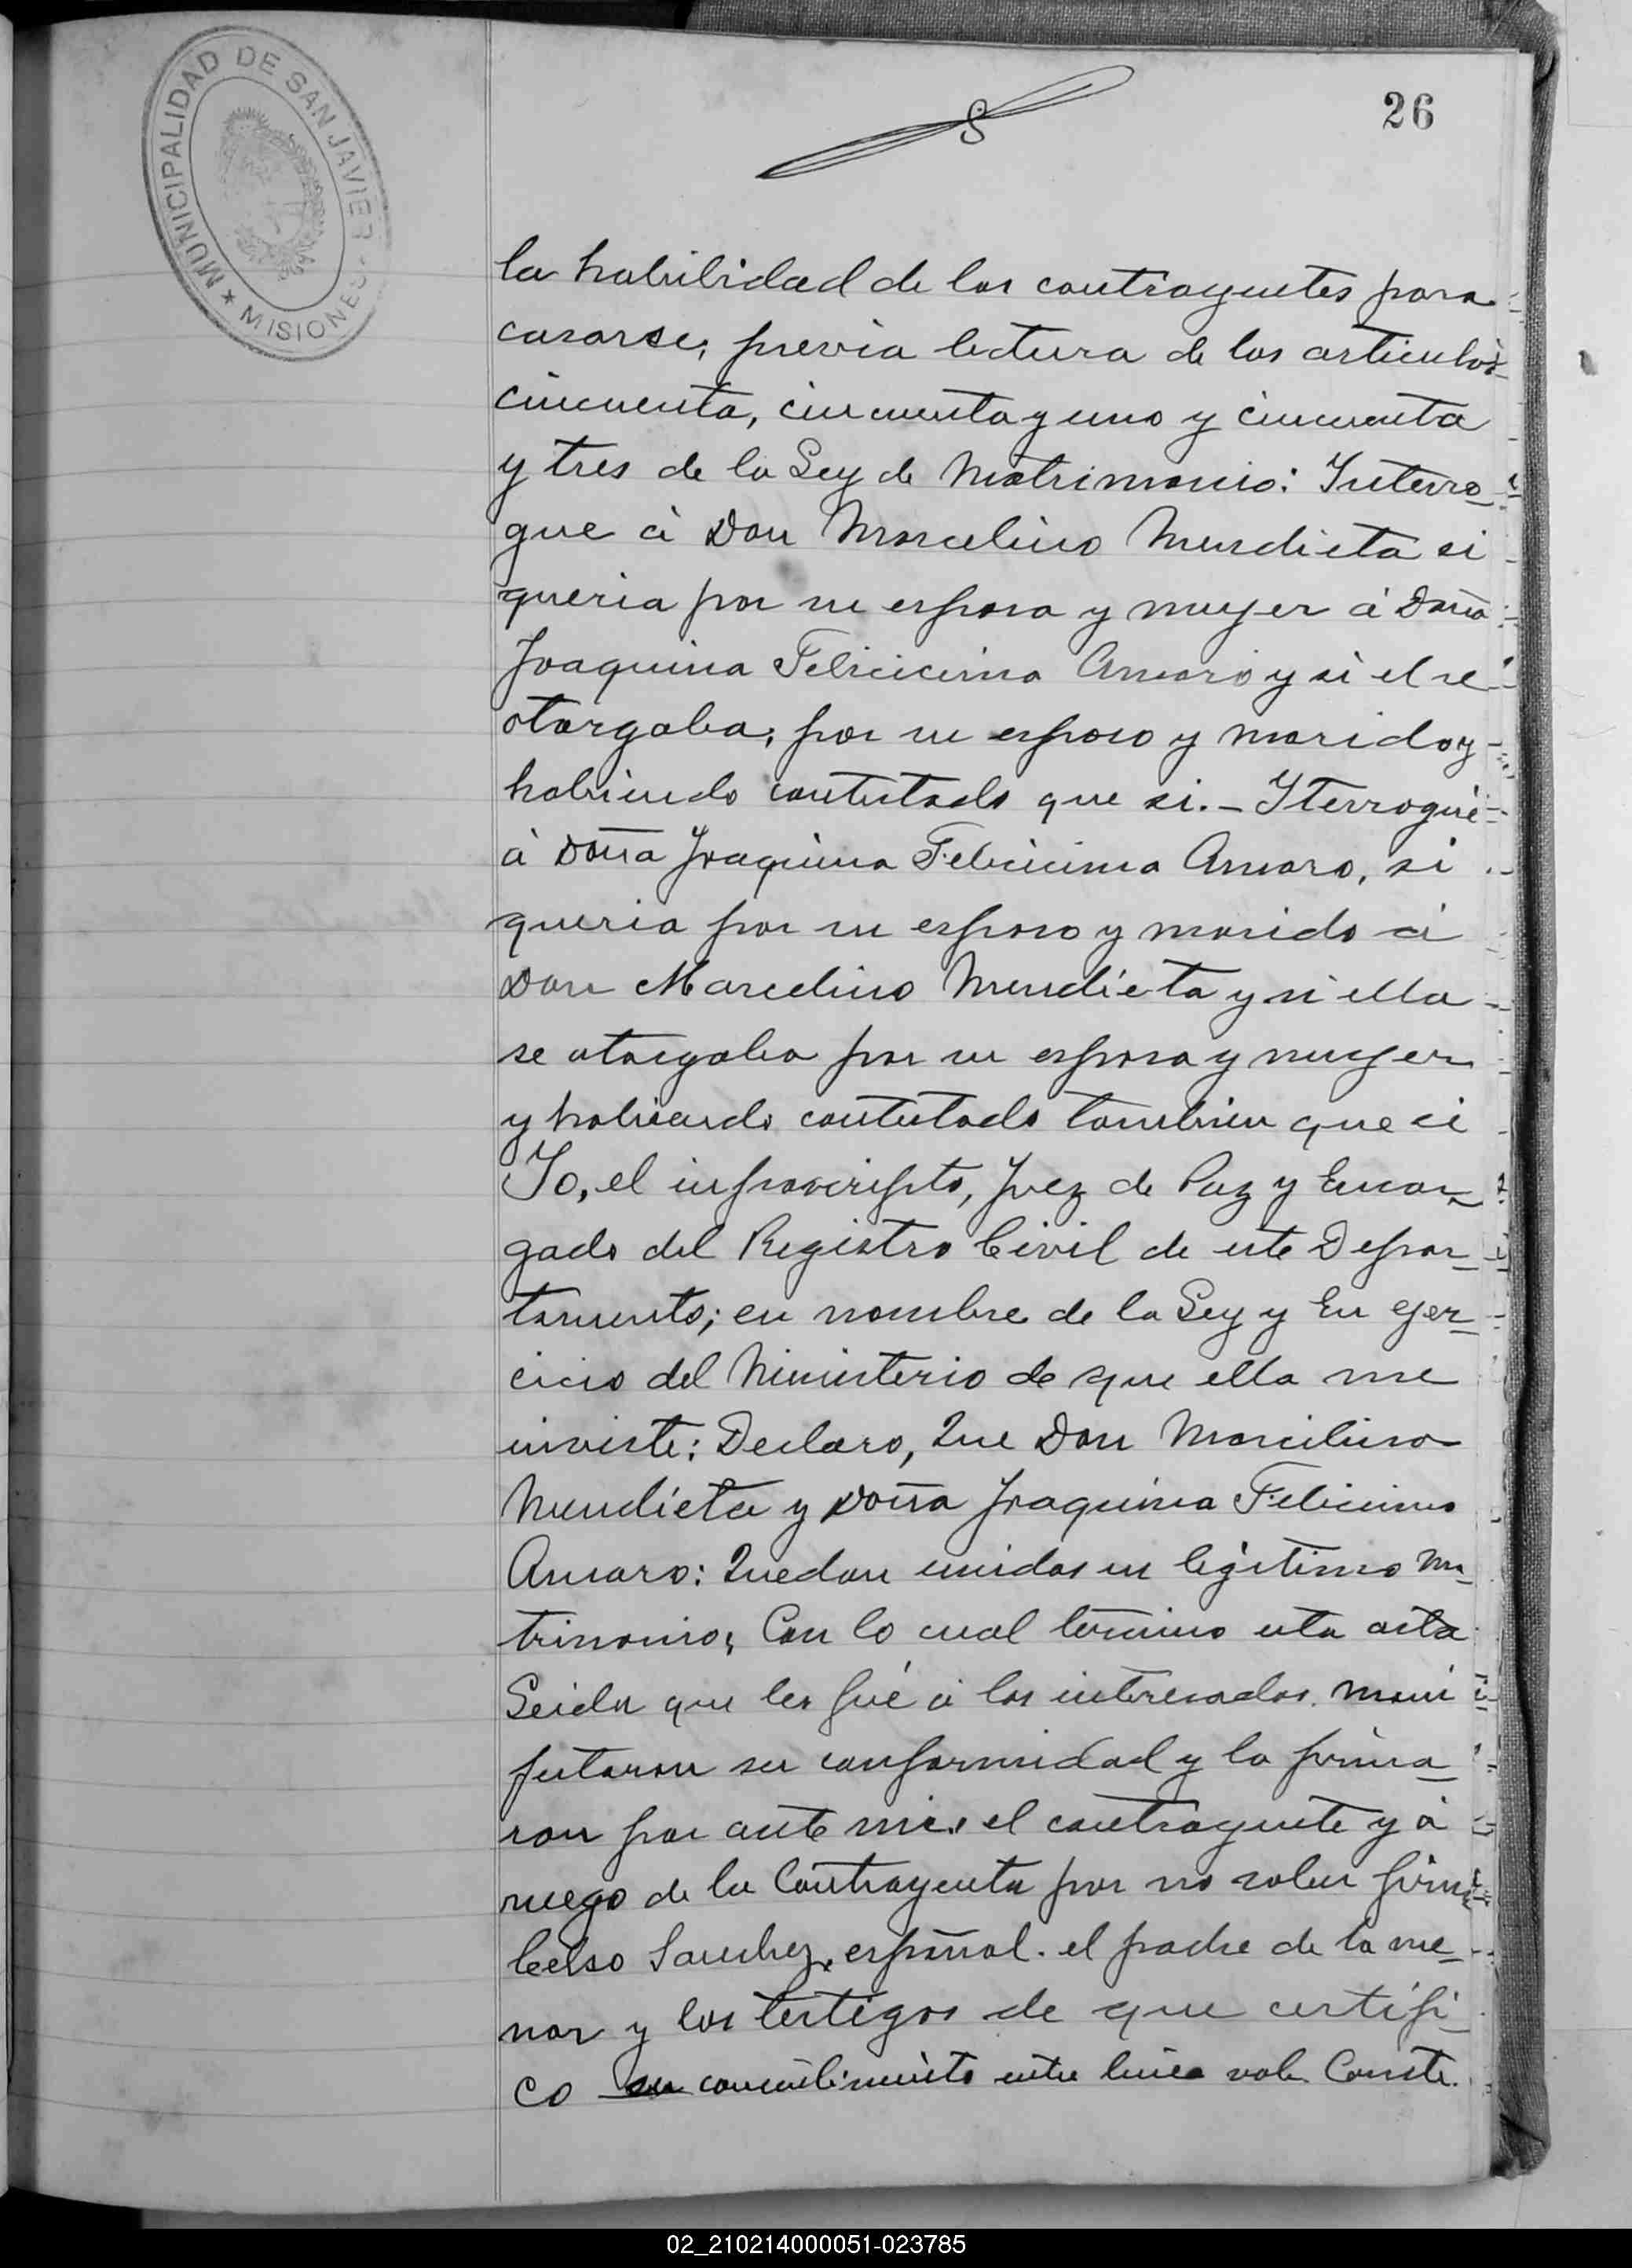 MUNICIPALIDAD DE SAN JAVIER
★ MISIONES
26
la habilidad de los contrayentes para
casarse, previa lectura de los articulos
cincuenta, cincuenta y uno y cincuenta
y tres de la Ley de Matrimonio: Interro
gue á Don Marcelino Mendieta si
queria por su esposa y muger á Doña
Joaquina Felicicima Amaro y si el se
otorgaba, por su esposo y marido y
habiendo contestado que si.- Iterrogué
á Doña Joaquina Felicicima Amaro, si
queria por su esposo y marido á
Don Marcelino Mendieta y si ella
se otorgaba por su esposa y muger
y habiendo contestado tambien que si
Yo, el infrascripto, Juez de Paz y Encar
gado del Registro Civil de este Depar
tamento; en nombre de la Ley y En ejer
cicio del Ministerio de que ella me
inviste: Declaro, Que Don Marcelino
Mendieta y Doña Joaquina Felicicima
Amaro: Quedan unidos en legitimo Ma
trimonio, Con lo cual termino esta acta
Leida que les fué á los interesados. mani
festaron su conformidad y la firma
ron por ante mi. el contrayente y á
ruego de la Contrayenta por no saber firmar
Celso Sanchez, español. el padre de la me
nor y los testigos de que certifi
co su consentimiento entre linea vale Conste.
02_210214000051-023785